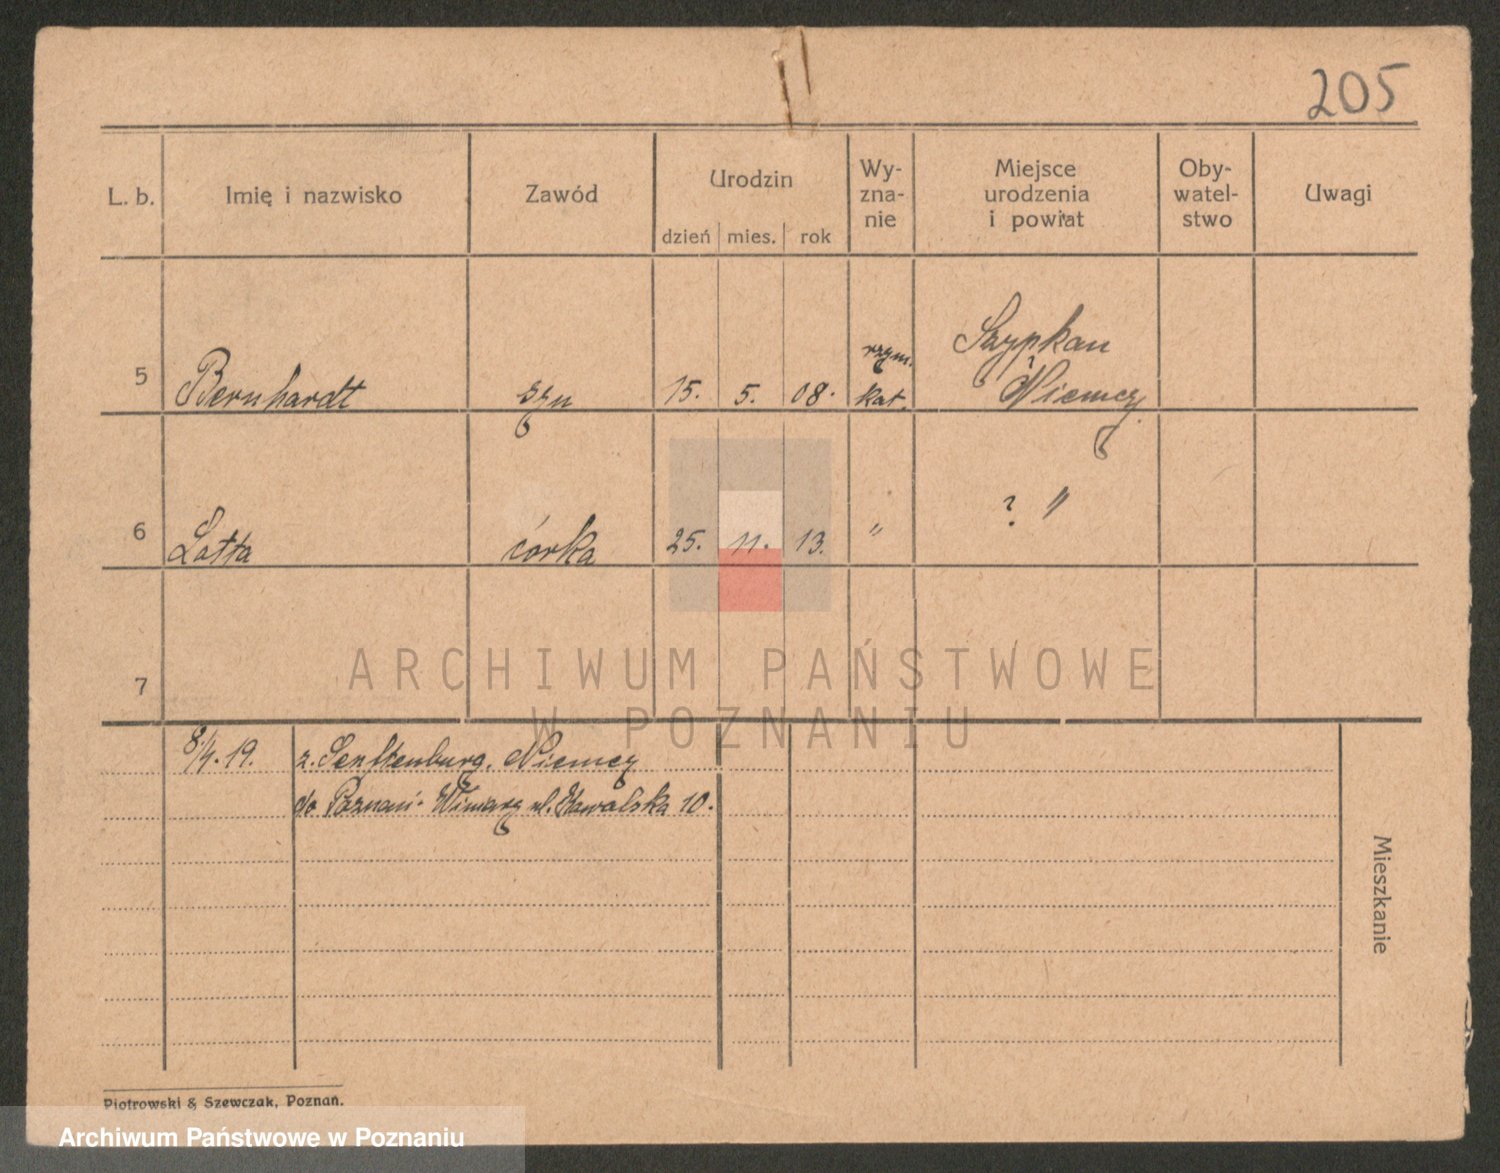 205
L. b. Imię i nazwisko Zawód Urodzin dzień mies. rok Wy-zna-nie Miejsce urodzenia i powiat Oby-watel-stwo Uwagi
5 Bernhardt syn 15. 5. 08. rzym. kat. Szypkau Niemcy
6 Lotta córka 25. 11. 13. " ? "
7
ARCHIWUM PAŃSTWOWE
W POZNANIU
8/4. 19. z. Senftenburg. Niemcy
do Poznań- Winiary ul. Kowalska 10.
Mieszkanie
Piotrowski & Szewczak, Poznań.
Archiwum Państwowe w Poznaniu